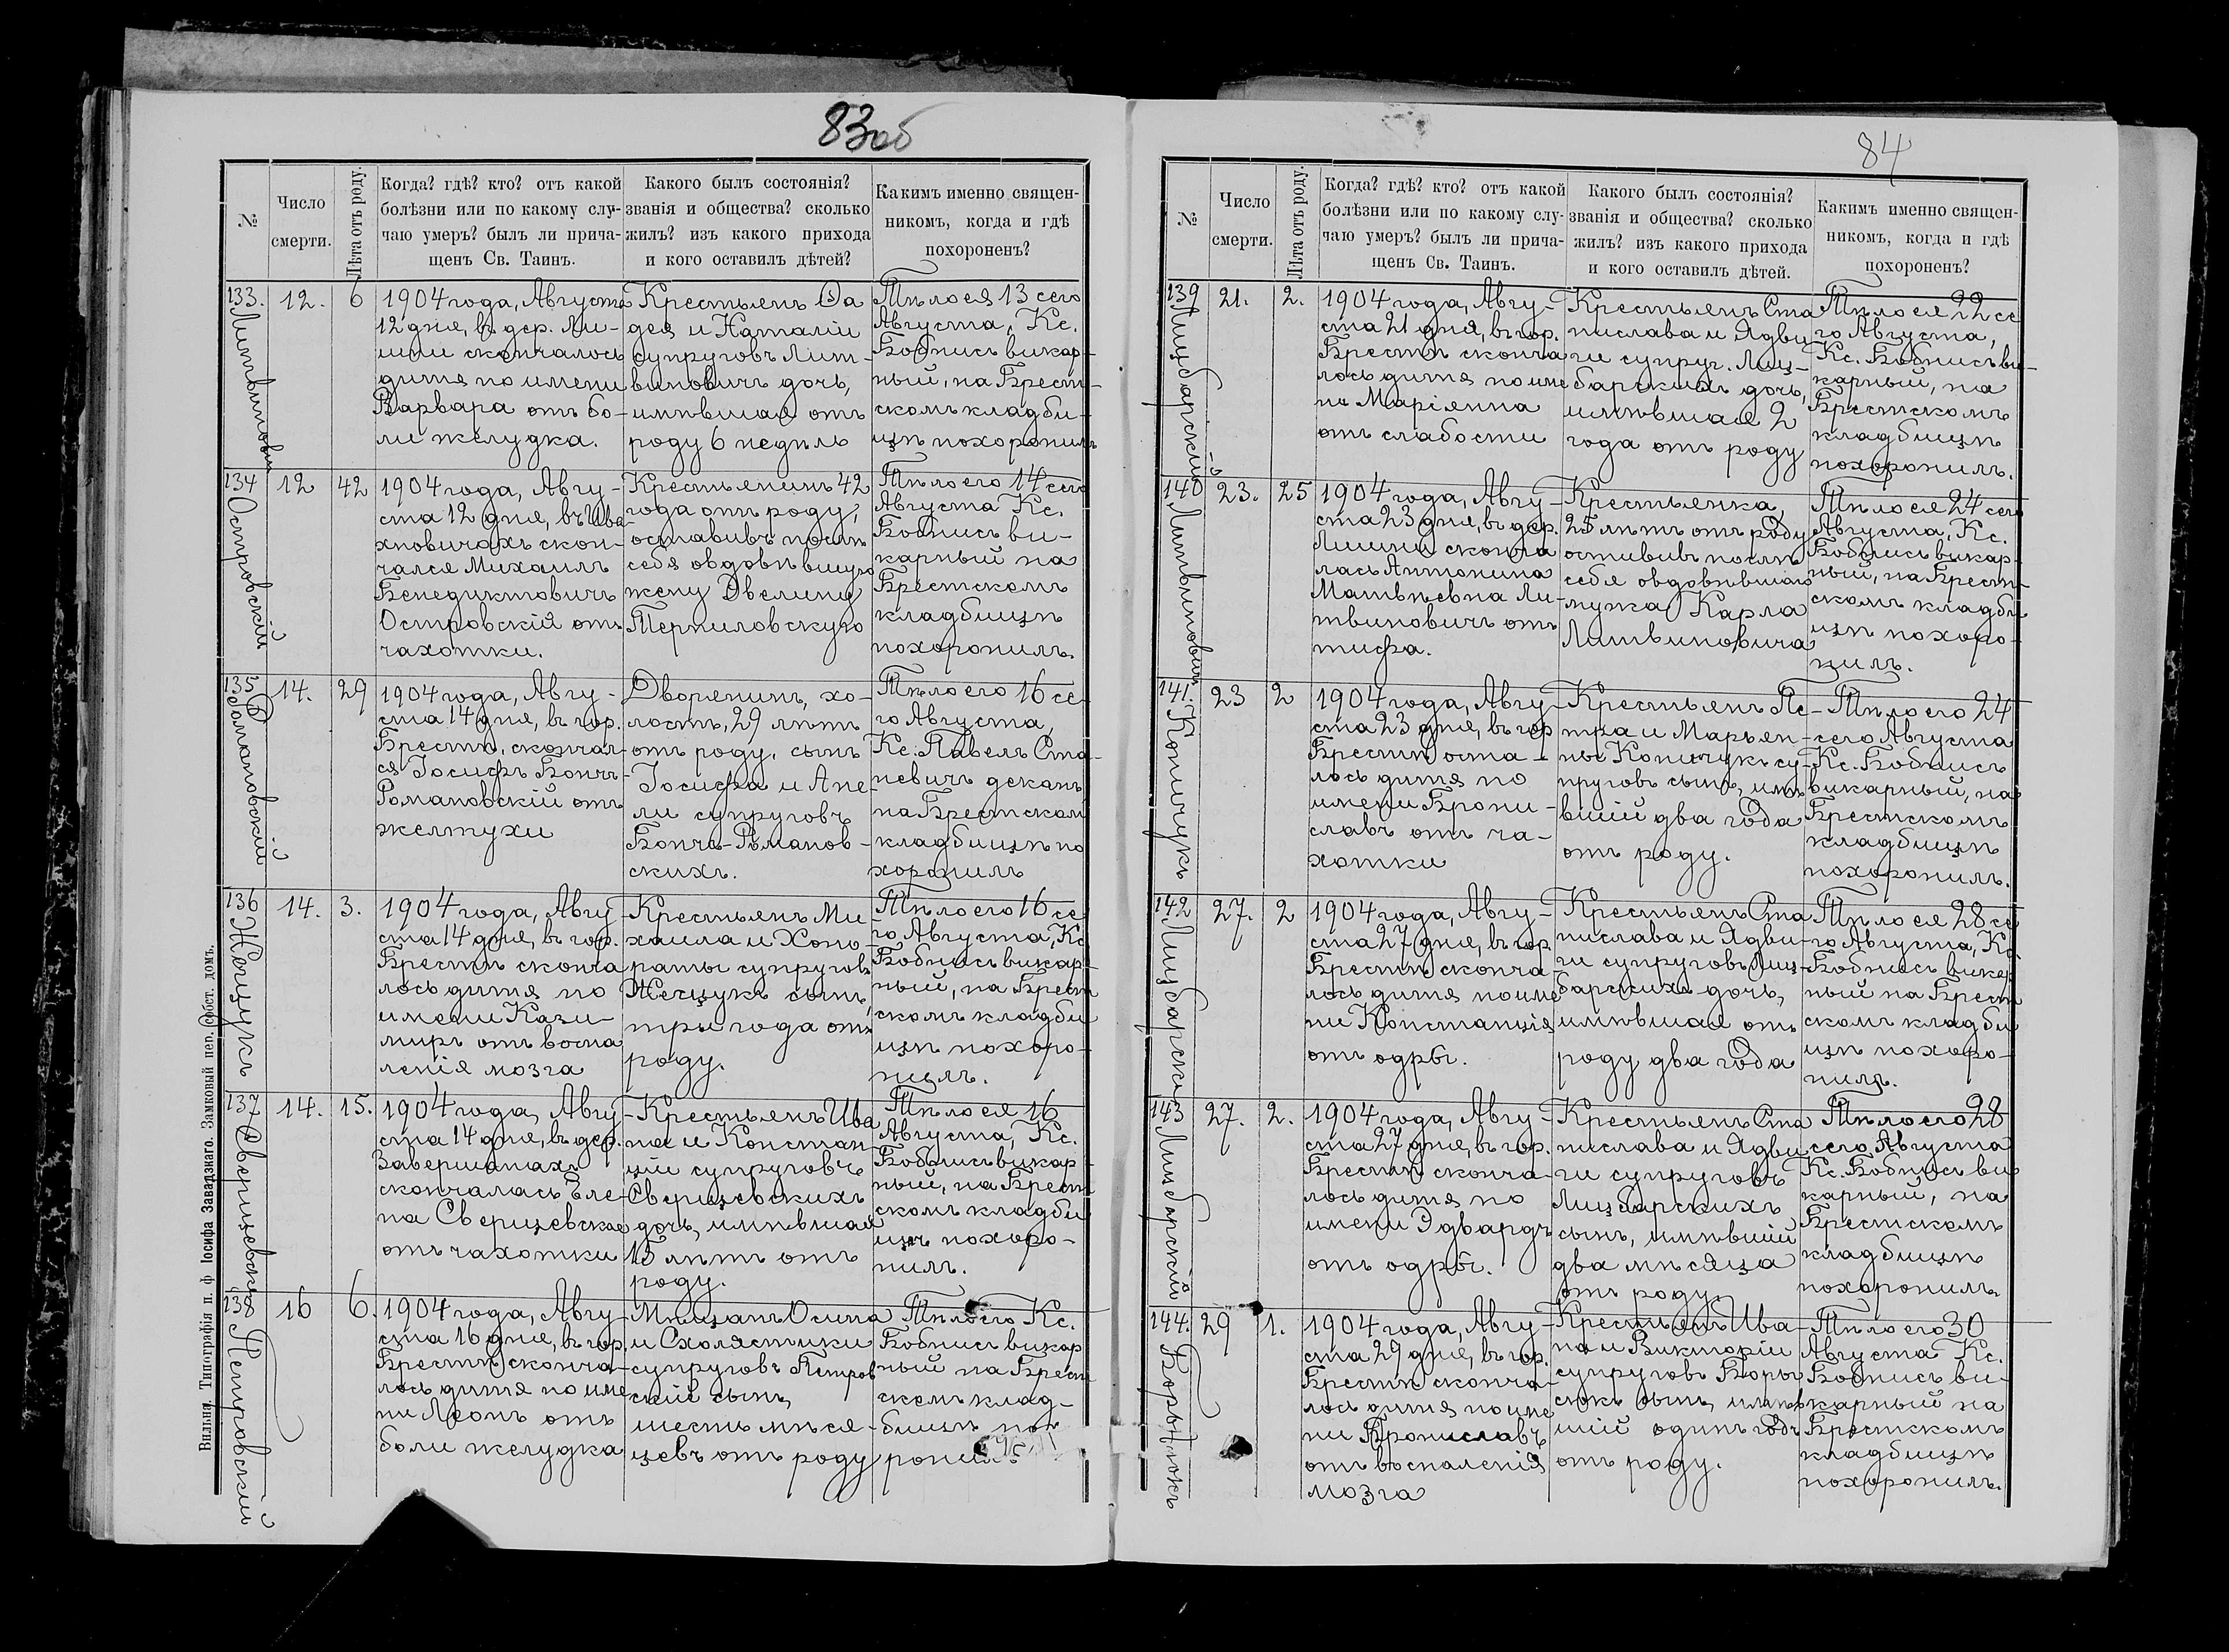 83об
№
Число
смерти.
Лѣта отъ роду.
Когда? гдѣ? кто? отъ какой
болѣзни или по какому слу-
чаю умеръ? былъ ли прича-
щенъ Св. Таинъ.
Какого былъ состоянія?
званія и общества? сколько
жилъ? изъ какого прихода
и кого оставилъ дѣтей?
Какимъ именно священ-
никомъ, когда и гдѣ
похороненъ?
133.
Литвиновичъ
12.
6
1904 года, Августа
12 дня, въ дер. Ли-
шни скончалось
дитя по имени
Варвара отъ бо-
ли желудка.
Крестьянъ Фа
дея и Наталіи
супруговъ Лит-
виновичъ дочь,
имѣвшая отъ
роду 6 недѣль
Тѣло ея 13 сего
Августа, Кс.
Бобнисъ викар-
ный, на Брест-
скомъ кладби-
щѣ похоронилъ
134
Островскій
12
42
1904 года, Авгу-
ста 12 дня, въ Ива-
хновичахъ скон-
чался Михаилъ
Бенедиктовичъ
Островскій отъ
чахотки.
Крестьянинъ 42
года отъ роду,
оставивъ послѣ
себя овдовѣвшую
жену Эвелину
Терпиловскую
Тѣло его 14 сего
Августа Кс.
Бобнисъ ви-
карный на
Брестскомъ
кладбищѣ
похоронилъ.
135
Романовскій
14.
29
1904 года, Авгу-
ста 14 дня, въ гор.
Брестѣ, скончал-
ся Іосифъ Бончъ-
Романовскій отъ
желтухи
Дворянинъ, хо-
лостъ, 29 лѣтъ
отъ роду, сынъ
Іосифа и Ане-
ли супруговъ
Бончъ-Романов-
скихъ.
Тѣло его 16 се-
го Августа,
Кс. Павелъ Ста-
невичъ деканъ
на Брестском
кладбищѣ по
хоронилъ
136
Жещукъ
14.
3.
1904 года, Авгу
ста 14 дня, въ гор.
Брестѣ сконча
лось дитя по
имени Кази-
миръ отъ воспа
ленія мозга
Крестьянъ Ми
хаила и Хоно-
раты супруговъ
Жещукъ сынъ,
три года отъ
роду.
Тѣло его 16 се
го Августа, Кс
Бобнисъ викар-
ный, на Брест
скомъ кладби
щѣ похоро-
нилъ.
137
Сверщевская
14.
15.
1904 года, Авгу
ста 14 дня, въ дер.
Завершанахъ
скончалась Еле-
на Сверщевская
отъ чахотки
Крестьянъ Ива
на и Констан
ціи супруговъ
Сверщевскихъ
дочь, имѣвшая
15 лѣтъ отъ
роду.
Тѣло ея 16
Августа, Кс.
Бобнисъ викар
ный, на Брест
скомъ кладби
щѣ похоро-
нилъ.
138
Петровскій
16
6.
1904 года, Авгу
ста 16 дня, въ гор.
Брестѣ сконча-
лось дитя по име
ни Леонъ отъ
боли желудка
Мѣщанъ Осипа
и Схолястики
супруговъ Петров
скій сынъ,
шесть мѣся-
цевъ отъ роду
Тѣло его Кс.
Бобнисъ викар
ный на Брест
скомъ клад-
бищѣ пох
ронилъ
Вильна. Типографія п. ф. Іосифа Завадзкаго. Замковый пер. собст. домъ.
84
№
Число
смерти.
Лѣта отъ роду.
Когда? гдѣ? кто? отъ какой
болѣзни или по какому слу-
чаю умеръ? былъ ли прича-
щенъ Св. Таинъ.
Какого былъ состоянія?
званія и общества? сколько
жилъ? изъ какого прихода
и кого оставилъ дѣтей.
Какимъ именно священ-
никомъ, когда и гдѣ
похороненъ?
139
Лицбарскій
21.
2.
1904 года, Авгу-
ста 21 дня, въ гор.
Брестѣ сконча
лось дитя по име
нѣ Маріянна
отъ слабости
Крестьянъ Ста
нислава и Ядви
ги супруг. Лиц-
барскихъ дочь,
имѣвшая 2
года отъ роду
Тѣло ея 22 се
го Августа,
Кс. Бобнисъ ви-
карный, на
Брестскомъ
кладбищѣ
похоронилъ.
140
Литвиновичъ
23.
25
1904 года, Авгу-
ста 23 дня, въ дер.
Лишни сконча
лась Антонина
Матвѣевна Ли-
твиновичъ отъ
тифа.
Крестьянка,
25 лѣтъ отъ роду
оставивъ послѣ
себя овдовѣвшаго
мужа Карла
Литвиновича
Тѣло ея 24 сего
Августа, Кс.
Бобнисъ викар
ный, на Брест-
скомъ кладби
щѣ похоро-
нилъ.
141.
Коничукъ
23
2
1904 года, Авгу-
ста 23 дня, въ гор
Брестѣ оста-
лось дитя по
имени Брони-
славъ отъ ча-
хотки
Крестьянъ Пе-
тра и Марьян-
ны Коничукъ су-
пруговъ сынъ, имѣ
вшій два года
отъ роду.
Тѣло его 24
сего Августа
Кс. Бобнисъ
викарный, на
Брестскомъ
кладбищѣ
похоронилъ.
142
Лицбарская
27.
2
1904 года, Авгу-
ста 27 дня, въ гор
Брестѣ сконча-
лось дитя по име
ни Констанція
отъ одры.
Крестьянъ Ста
нислава и Ядви-
ги супруговъ Лиц-
барскихъ дочь,
имѣвшая отъ
роду два года
Тѣло ея 28 се
го Августа, Кс
Бобнисъ викар
ный на Брест
скомъ кладби
щѣ похоро-
нилъ.
143
Лицбарскій
27.
2.
1904 года, Авгу-
ста 27 дня, въ гор.
Брестѣ сконча-
лось дитя по
имени Эдвардъ
отъ одры.
Крестьянъ Ста
нислава и Ядви
ги супруговъ
Лицбарскихъ
сынъ, имѣвшій
два мѣсяца
отъ роду.
Тѣло его 28
сего Августа
Кс. Бобнисъ ви
карный, на
Брестскомъ
кладбищѣ
похоронилъ.
144.
29
1.
1904 года, Авгу-
ста 29 дня, въ гор.
Брестѣ сконча-
лось дитя по име
ни Брониславъ
отъ воспаленія
мозга
Крестьянъ Ива-
на и Викторіи
супруговъ Боры
сюкъ сынъ, имѣв
шій одинъ годъ
отъ роду.
Тѣло его 30
Августа Кс.
Бобнисъ ви-
карный на
Брестскомъ
кладбищѣ
похоронилъ.